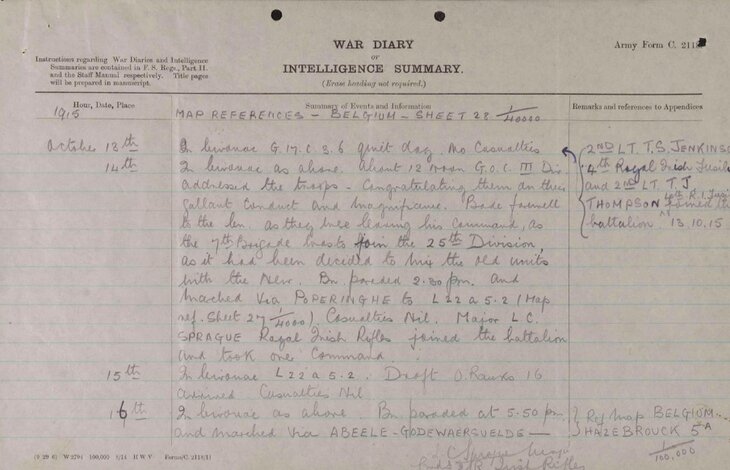 WAR DIARY
or
INTELLIGENCE SUMMARY.
(Erase heading not required.)
Army Form C. 2118.
Instructions regarding War Diaries and Intelligence
Summaries are contained in F. S. Regs., Part II.
and the Staff Manual respectively. Title pages
will be prepared in manuscript.
Hour, Date, Place
Summary of Events and Information
Remarks and references to Appendices
1915
MAP REFERENCES - BELGIUM - SHEET 28 1/40000
October 13th
In bivouac G.17.C.3.6 quiet day. No Casualties
14th
In bivouac as above. About 12 noon G.O.C. III Div
addressed the troops - Congratulating them on their
gallant conduct and magnificence. Bade farewell
to the bn. as they were leaving his Command, as
the 7th Brigade was to join the 25th Division,
as it had been decided to mix the old units
with the New. Bn. paraded 2.30 pm. and
marched via POPERINGHE to L 22 a 5.2 (Map
ref. Sheet 27 1/4000). Casualties Nil. Major L.C.
SPRAGUE Royal Irish Rifles joined the battalion
and took over Command.
15th
In bivouac L 22 a 5.2. Draft O. Ranks 16
arrived Casualties Nil
16th
In bivouac as above. Bn paraded at 5.50 pm.
and marched via ABEELE - GODEWAERSVELDE -
2ND LT. T.S. JENKINS
4th Royal Irish Fusil
and 2ND LT. T.J
THOMPSON R.I. Fusi
joined the
battalion. 13.10.15
Ref Map BELGIUM
HAZEBROUCK 5A
1/100,000
Sprague Major
Irish Rifles
(9 29 6) W 2794 100,000 8/14 H W V Forms/C. 2118/11